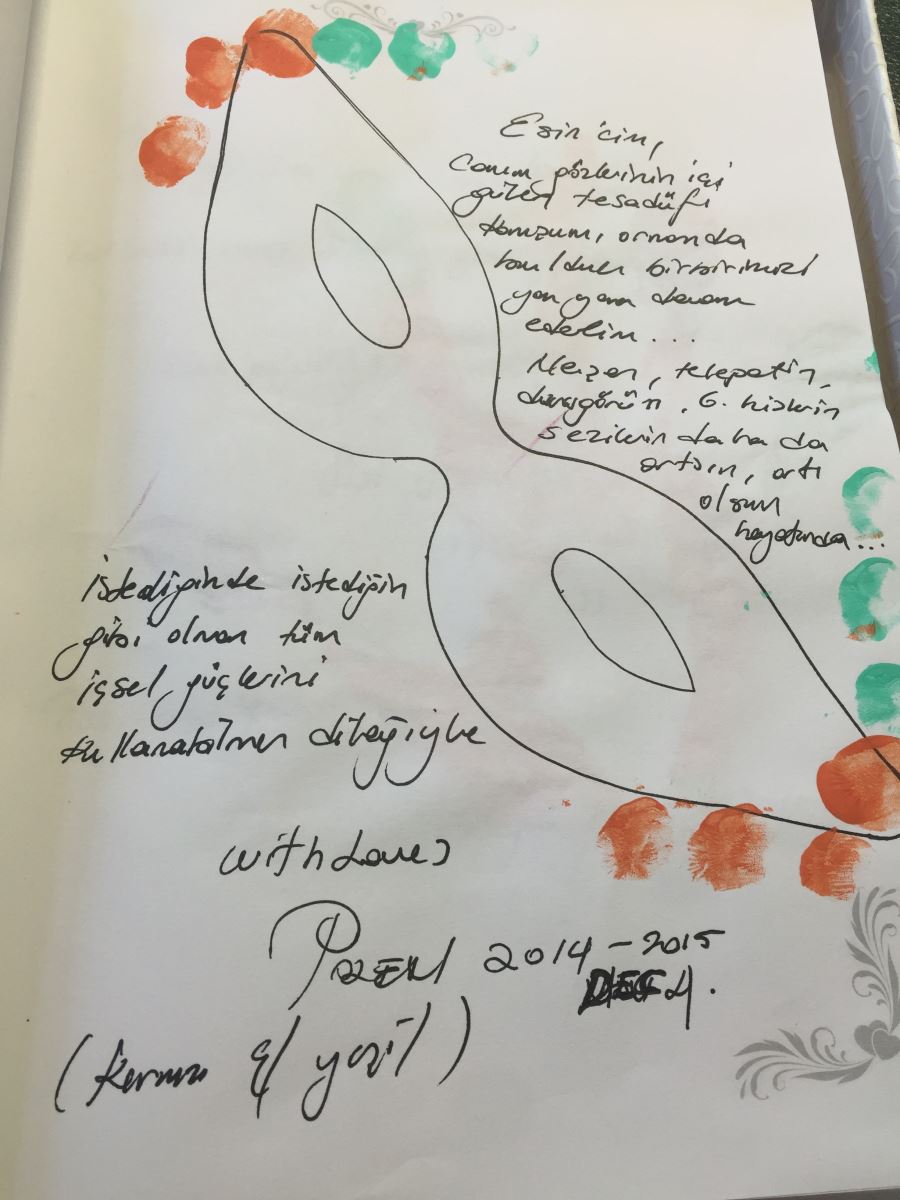 Esin'cim,
Canım gözlerinin içi
gülen tesadüfi
komşum, ormanda
bulduk birbirimizi
yan yana devam
edelim...
Neşen, telepatin,
durugörün, 6. hislerin
sezilerin daha da
artsın, artı
olsun
hayatında...
istediğinde istediğin
gibi olman tüm
içsel güçlerini
kullanabilmen dileğiyle
with Love
2014-2015